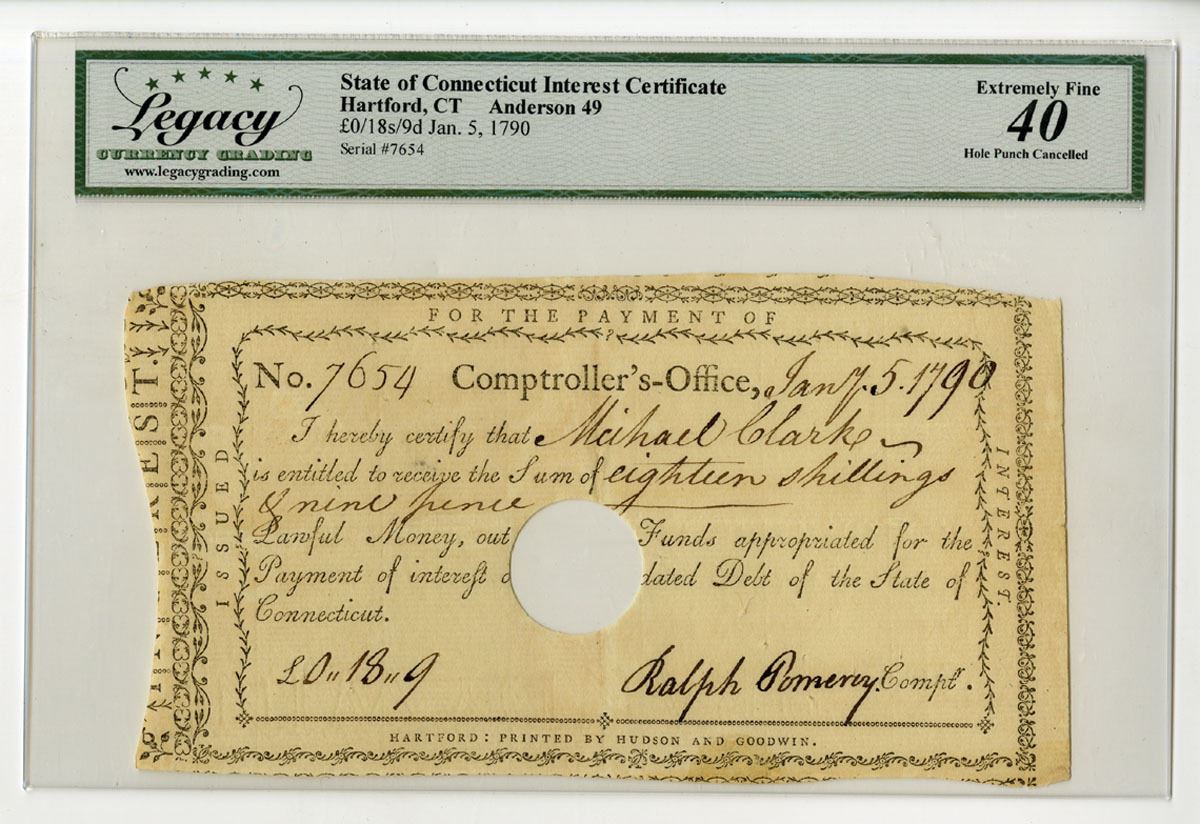 Legacy
CURRENCY GRADING
www.legacygrading.com
State of Connecticut Interest Certificate
Hartford, CT Anderson 49
£0/18s/9d Jan. 5, 1790
Serial #7654
Extremely Fine
40
Hole Punch Cancelled
FOR THE PAYMENT OF
No. 7654 Comptroller's-Office, Jany. 5. 1790
I hereby certify that Michael Clark
is entitled to receive the Sum of eighteen shillings
& nine pence
Lawful Money, out Funds appropriated for the
Payment of interest dated Debt of the State of
Connecticut.
£0,,18,,9
Ralph Pomeroy Compt.
HARTFORD: PRINTED BY HUDSON AND GOODWIN.
ISSUED
INTEREST.
REST.